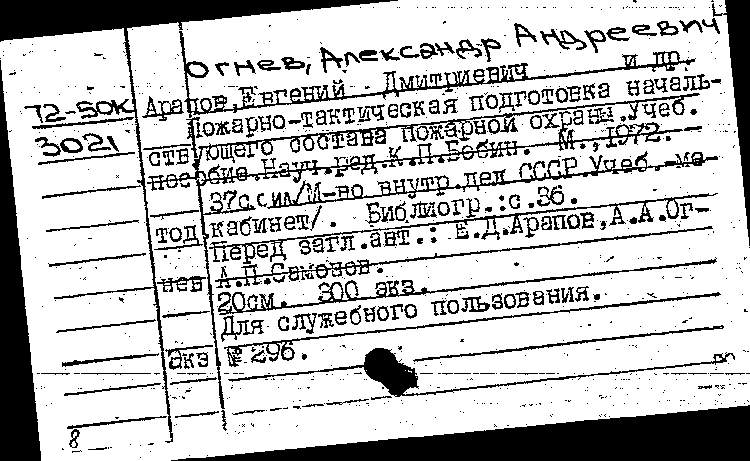 Огнев, Александр Андреевич
72-50К Арапов,Евгений Дмитриевич и др.
3021 Пожарно-тактическая подготовка началь-
ствующего состава пожарной охраны.Учеб.
пособие.Науч.ред.К.П.Бобин. М.,1972.
37с.с ил/М-во внутр.дел СССР.Учеб.-ме-
тод.кабинет/. Библиогр.:с.36.
Перед загл.авт.: Е.Д.Арапов,А.А.Ог-
нев,А.П.Самонов.
20см. 300 экз.
Для служебного пользования.
Экз.№ 296.
8